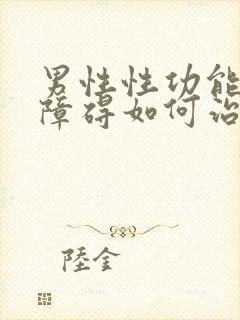 男性性功能
障碍如何治
陸金